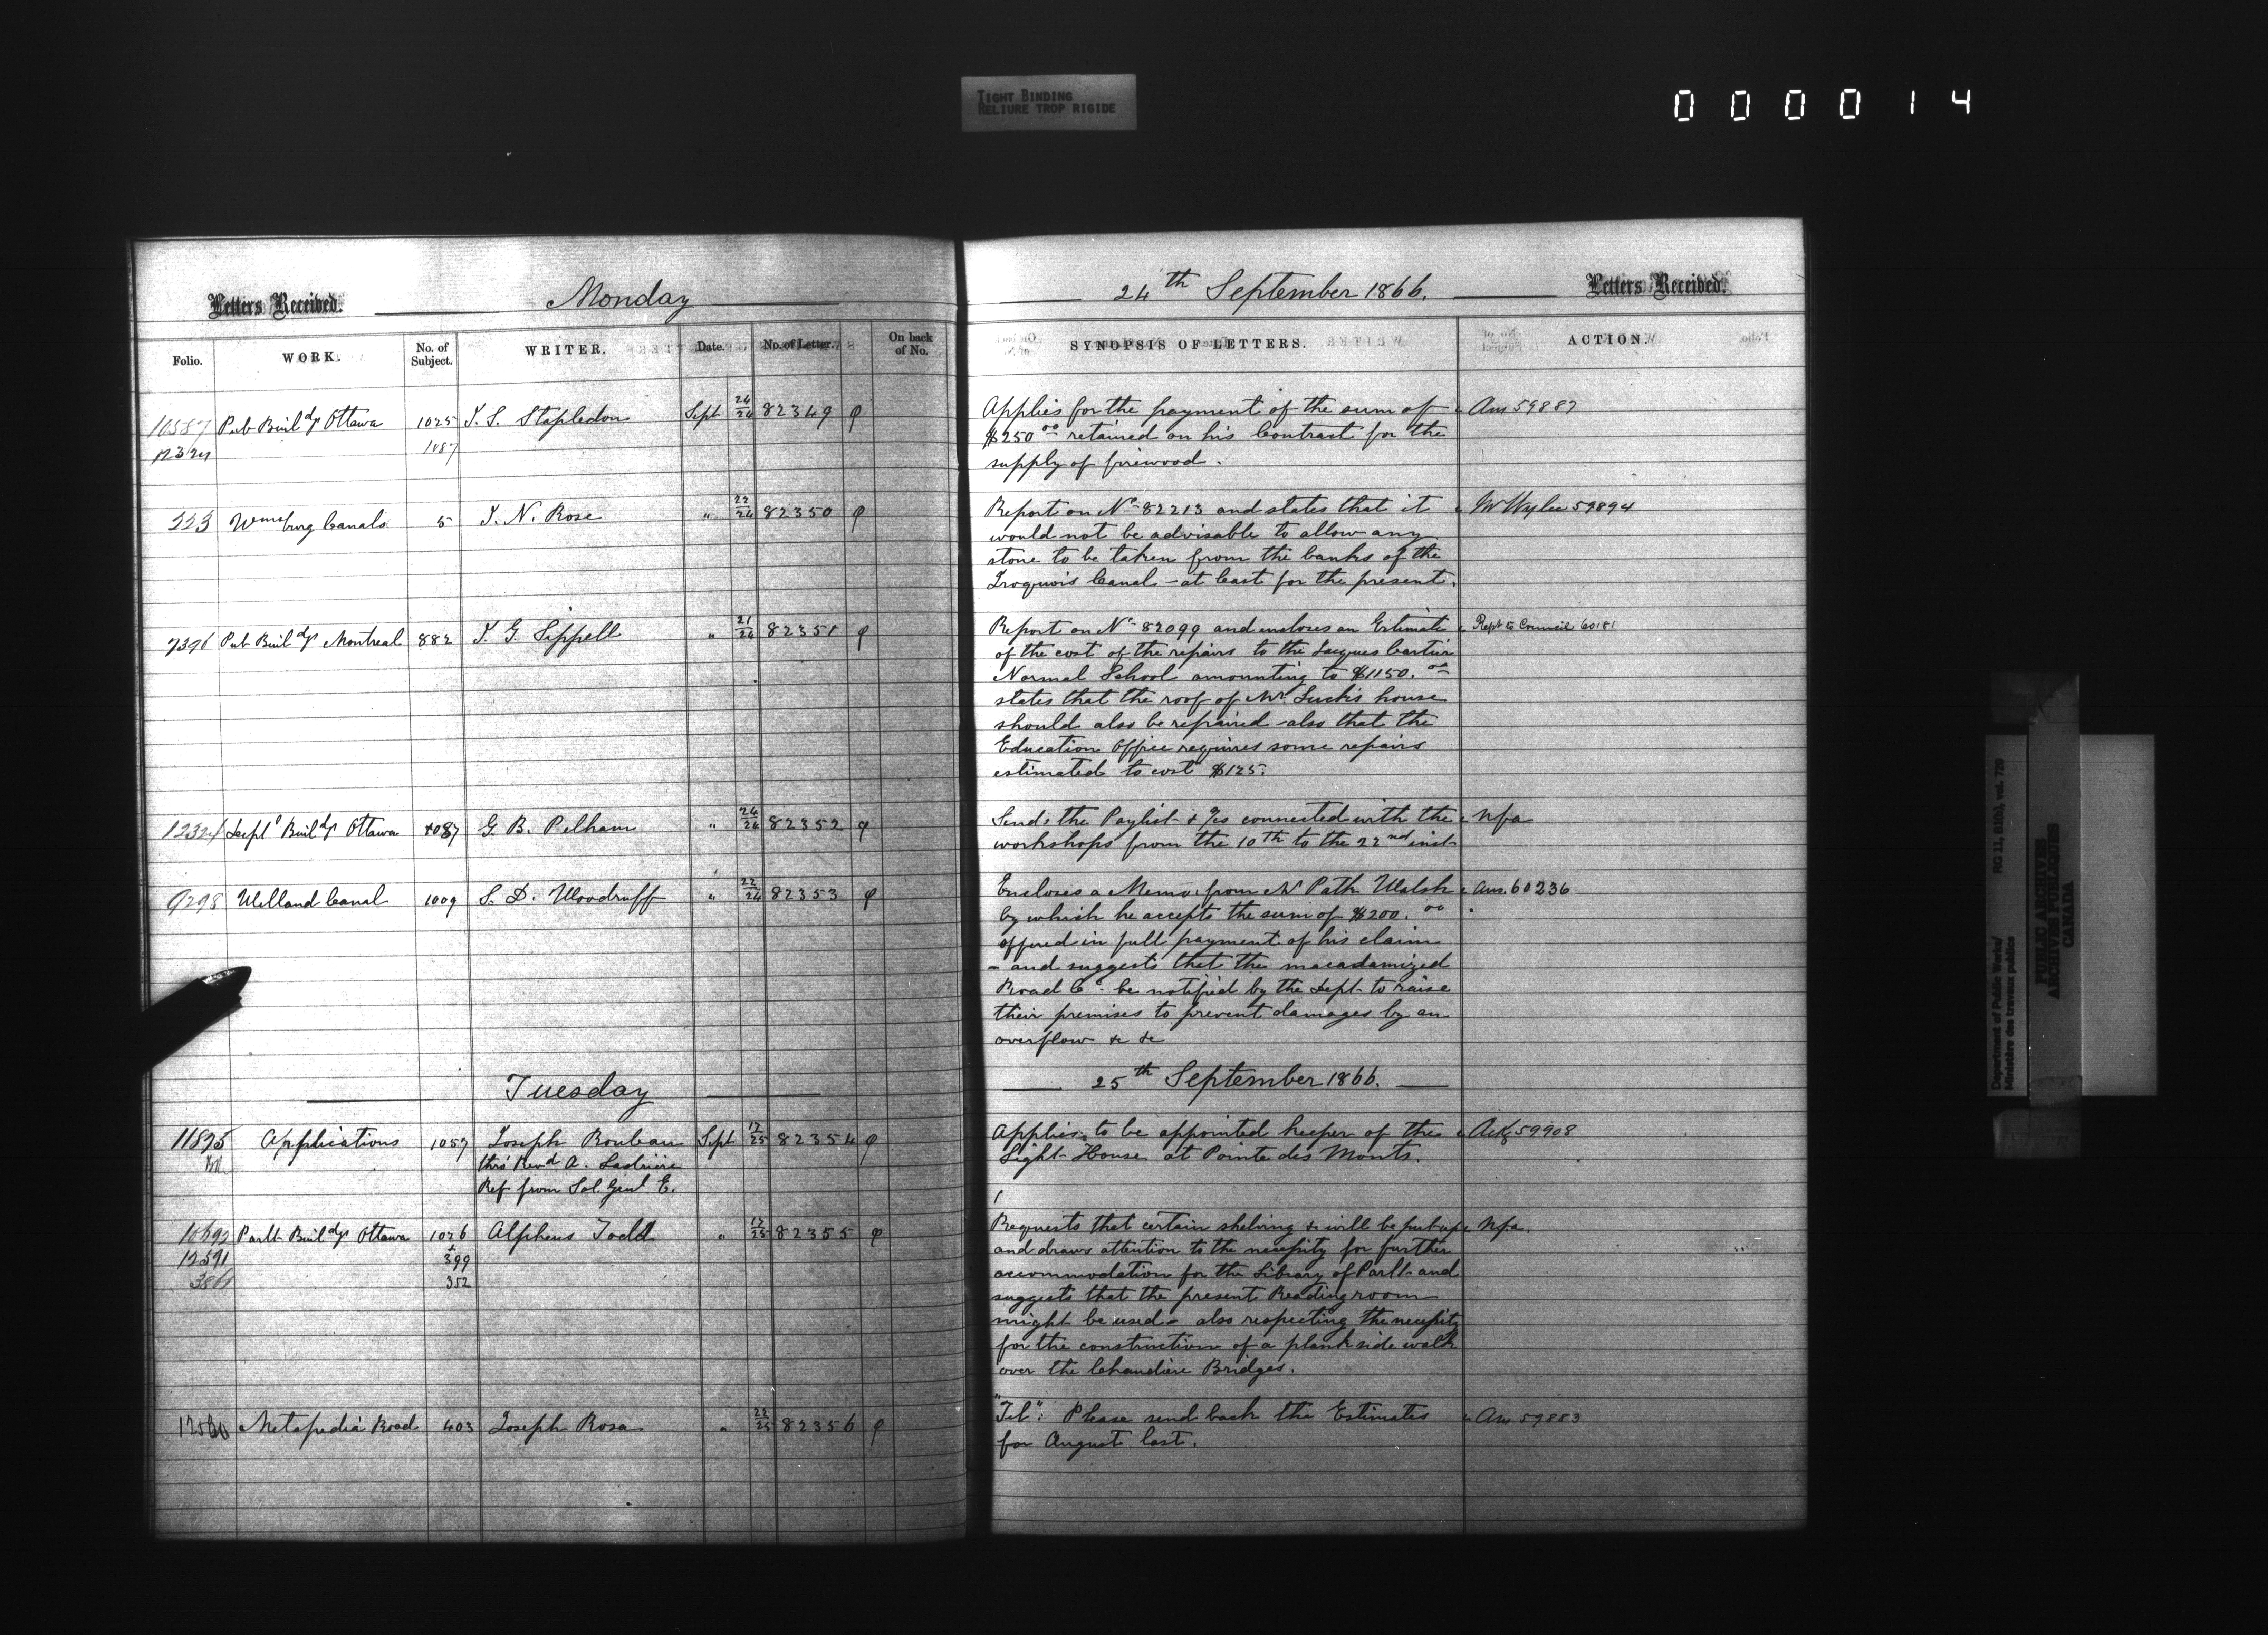 TIGHT BINDING
RELIURE TROP RIGIDE
000014
Letters Received. Monday
Folio. WORK. No. of Subject. WRITER. Date. No. of Letter. On back of No.
10587 Pub Buildgs Ottawa 1025 J. S. Stapledon Sept 24/24 82349
12324 1087
223 Wmsburg Canals 5 J. N. Rose " 22/24 82350
7396 Pub Buildgs Montreal 882 J. G. Sippell " 21/24 82351
12324 Deptl Buildgs Ottawa 1087 G. B. Pelham " 24/24 82352
9298 Welland Canal 1009 S. D. Woodruff " 22/24 82353
Tuesday
11875 Applications 1057 Joseph Rouleau Sept 17/25 82354
thro' Revd A.
Ref from Sol. Genl E.
10692 Parlt Buildgs Ottawa 1026 Alpheus Todd " 17/25 82355
12591 399
386 352
Metapedia Road 403 Joseph Rosa " 22/25 82356
24th September 1866. Letters Received.
SYNOPSIS OF LETTERS. ACTION.
Applies for the payment of the sum of Ans 59887
$250.00 retained on his Contract for the
supply of firewood.
Report on No 82213 and states that it Mr Wylie 59894
would not be advisable to allow any
stone to be taken from the banks of the
Iroquois Canal - at least for the present.
Report on No 82099 and encloses an Estimate Rept to Council 60181
of the cost of the repairs to the Jacques Cartier
Normal School amounting to $1150.00
states that the roof of Mr Luck's house
should also be repaired - also that the
Education Office requires some repairs
estimated to cost $125.
Sends the Paylist & a/cs connected with the nfa
workshops from the 10th to the 22nd inst
Encloses a Memo: from Mr Patk Walsh Ans. 60236
by which he accepts the sum of $200.00
offered in full payment of his claim
- and suggests that the macadamized
Road Co. be notified by the Dept to raise
their premises to prevent damages by an
overflow &c &c
25th September 1866.
Applies to be appointed keeper of the Ackg 59908
Light House at Pointe des Monts.
Requests that certain shelving &c will be put up nfa.
and draws attention to the necessity for further
accommodation for the Library of Parlt and
suggests that the present Reading room
might be used - also respecting the necessity
for the construction of a plank side walk
over the Chaudière Bridges.
"Tel": Please send back the Estimates Ans 59883
for August last.
Department of Public Works/
Ministère des travaux publics
RG 11, B1(b), vol. 720
PUBLIC ARCHIVES
ARCHIVES PUBLIQUES
CANADA